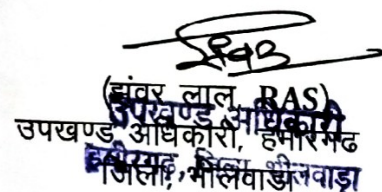 (झंवर लाल, RAS)
उपखण्ड अधिकारी
उपखण्ड अधिकारी, हमीरगढ
हमीरगढ, जिला भीलवाडा
जिला, भीलवाडा